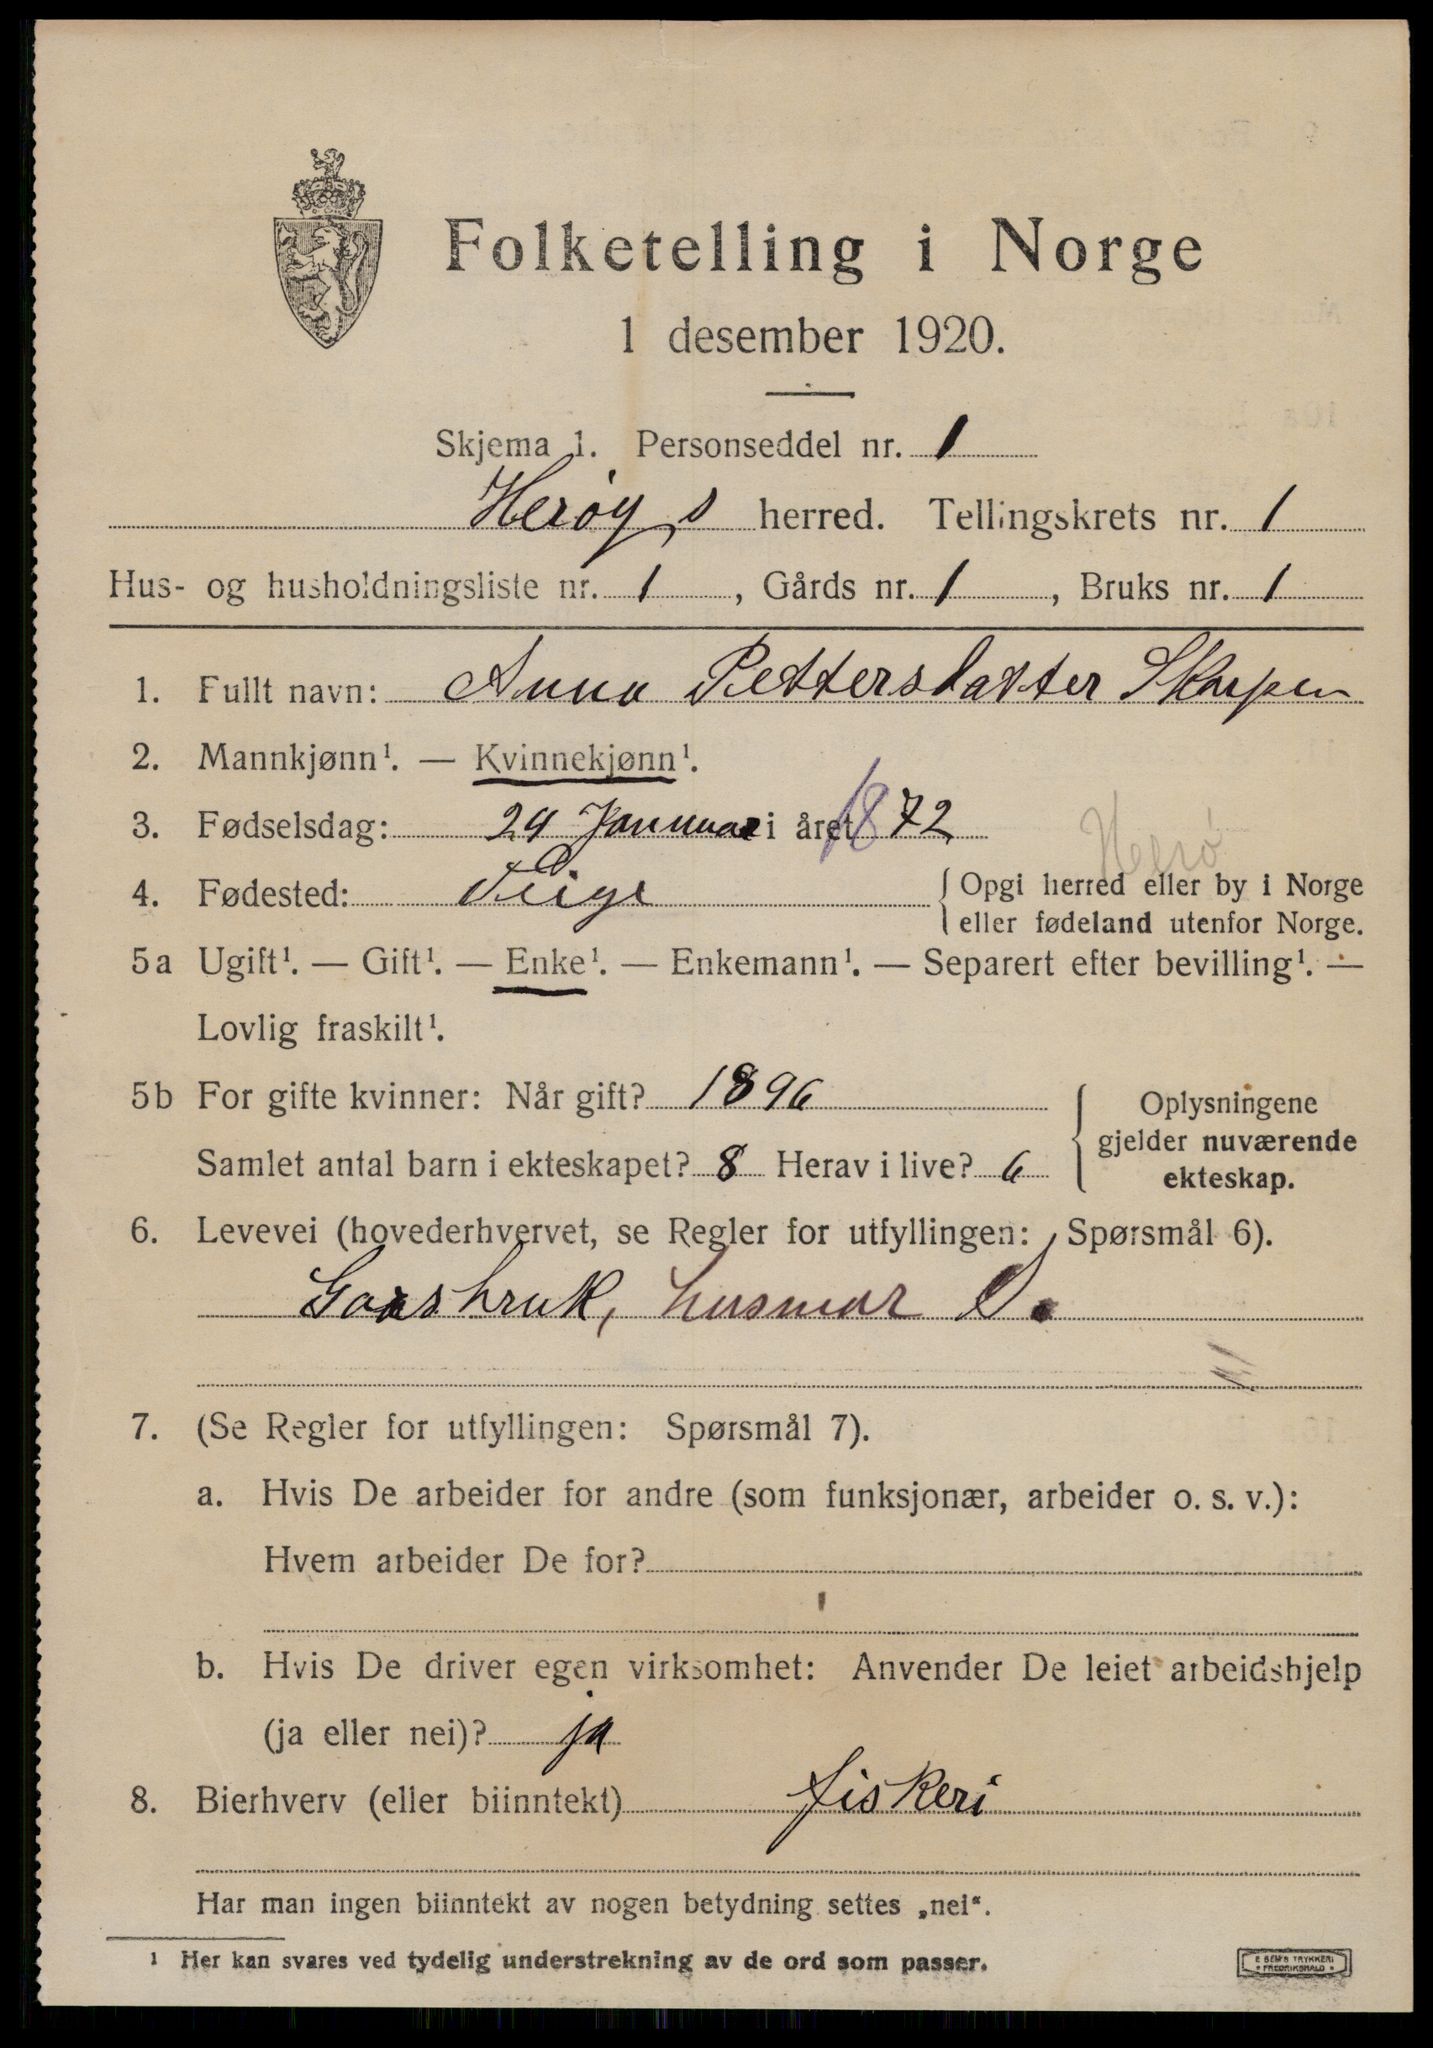 Folketelling i Norge
1 desember 1920.
Skjema 1. Personseddel nr. 1
Herøy s herred. Tellingskrets nr. 1
Hus- og husholdningsliste nr. 1, Gårds nr. 1, Bruks nr. 1
1. Fullt navn: Anna Pettersdatter Skarpen
2. Mannkjønn¹. — Kvinnekjønn¹.
3. Fødselsdag: 29 Januar i året 1872
Herø
4. Fødested: Teige { Opgi herred eller by i Norge
eller fødeland utenfor Norge.
5a Ugift¹. — Gift¹. — Enke¹. — Enkemann¹. — Separert efter bevilling¹. —
Lovlig fraskilt¹.
5b For gifte kvinner: Når gift? 1896
Samlet antal barn i ekteskapet? 8 Herav i live? 6
Oplysningene
gjelder nuværende
ekteskap.
6. Levevei (hovederhvervet, se Regler for utfyllingen: Spørsmål 6).
Gaarsbruk, husmor S.
7. (Se Regler for utfyllingen: Spørsmål 7).
a. Hvis De arbeider for andre (som funksjonær, arbeider o. s. v.):
Hvem arbeider De for?
b. Hvis De driver egen virksomhet: Anvender De leiet arbeidshjelp
(ja eller nei)? ja
8. Bierhverv (eller biinntekt) fiskeri
Har man ingen biinntekt av nogen betydning settes „nei“.
¹ Her kan svares ved tydelig understrekning av de ord som passer.
E SEM'S TRYKKERI
FREDRIKSHALD